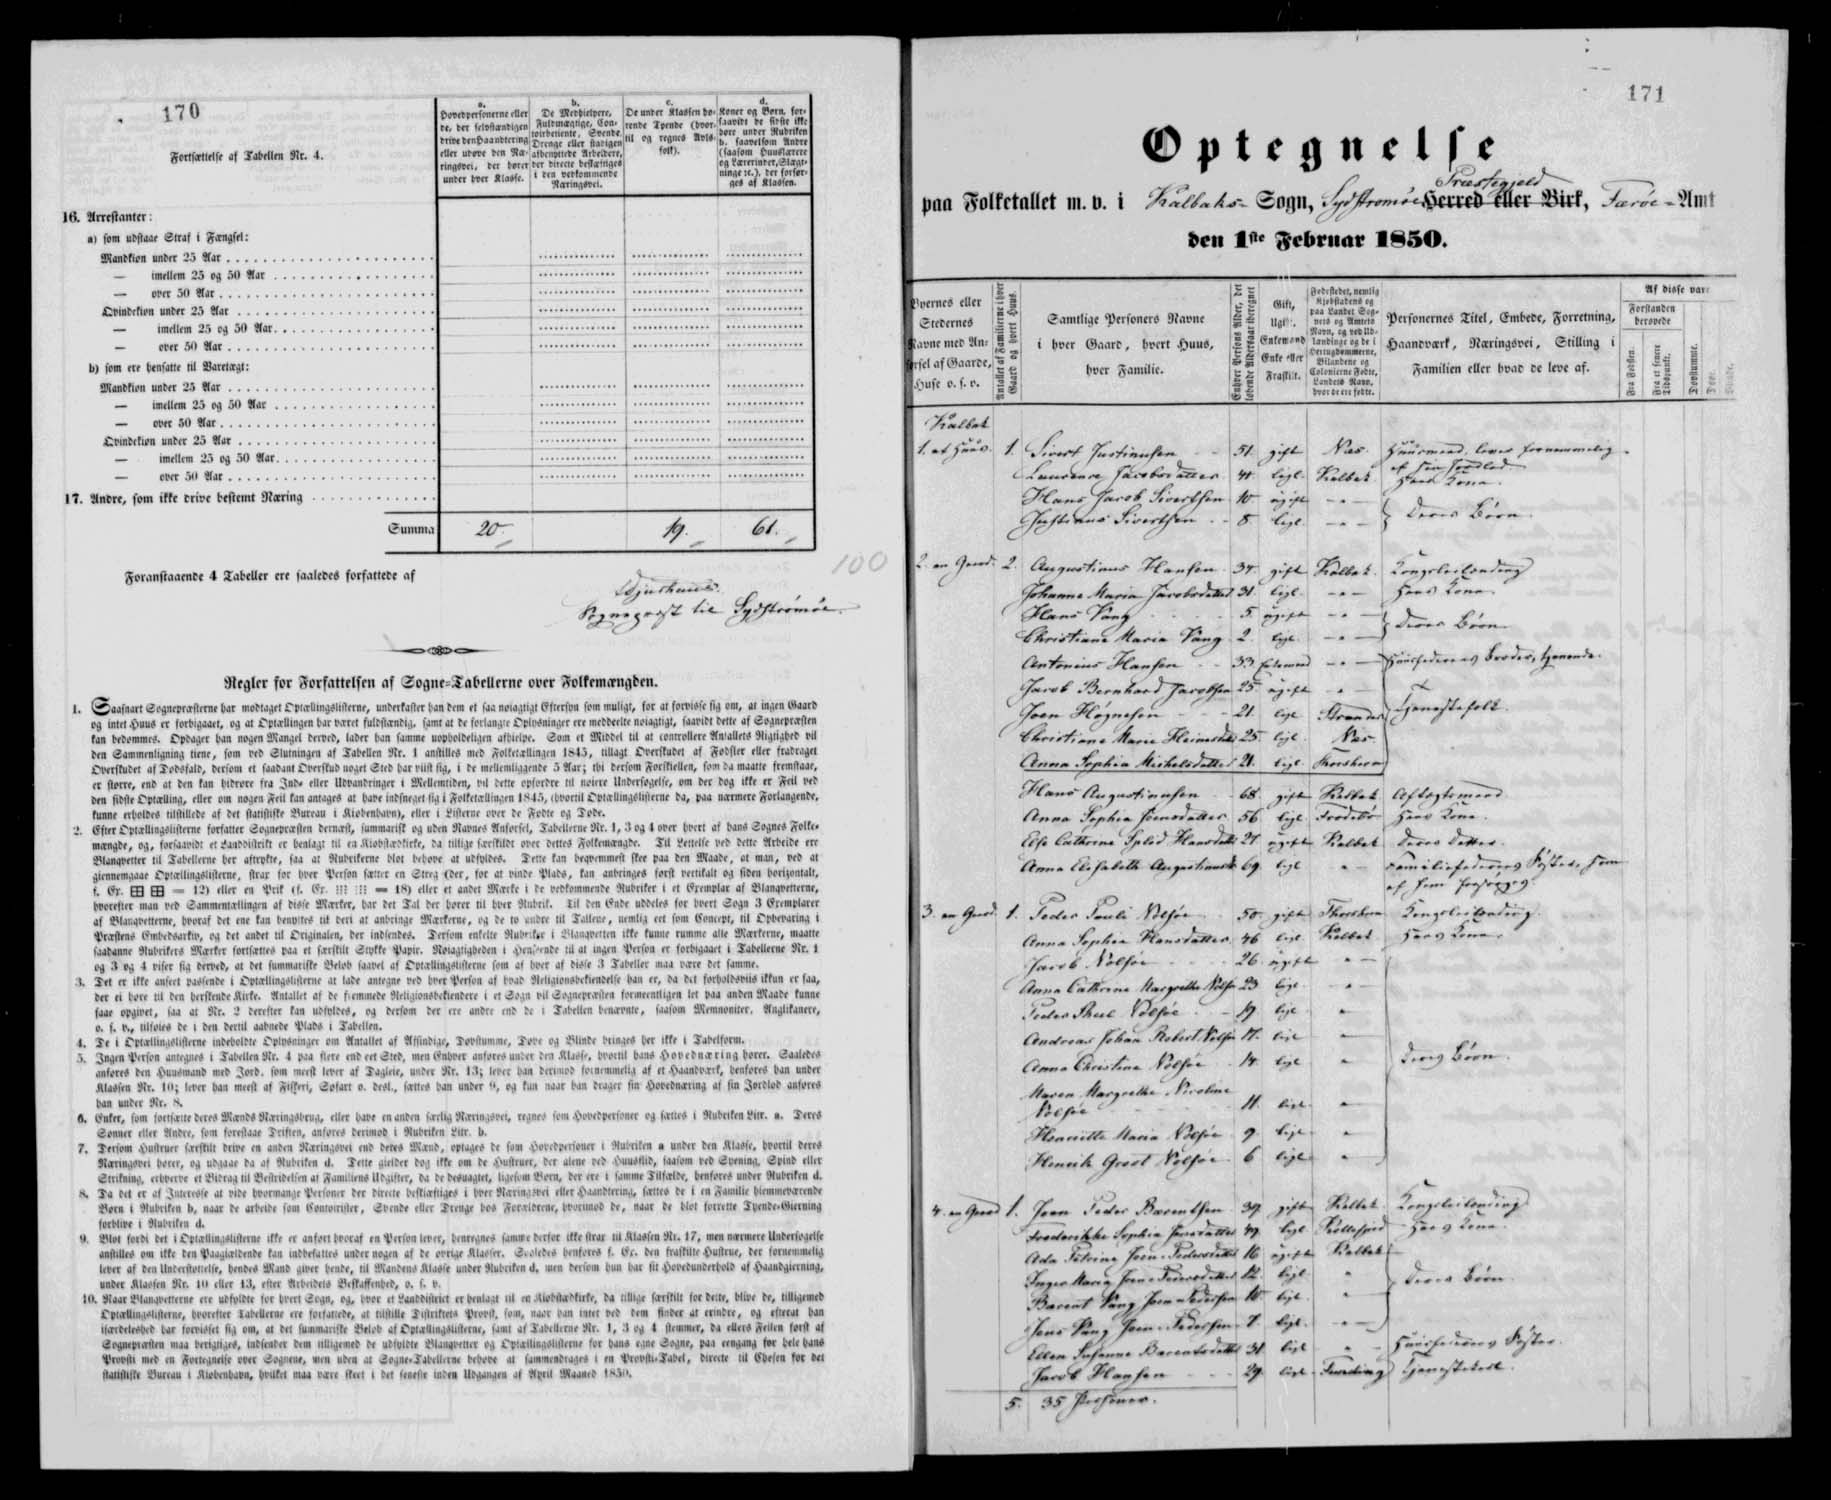 170
Fortsættelse af Tabellen Nr. 4.
a.
Hovedpersonerne eller
de, der selvstændigen
drive den Haandtering
eller udøve den Næ-
ringsvei, der hører
under hver Klasse.
b.
De Medhielpere,
Fuldmægtige, Con-
toirbetiente, Svende,
Drenge eller stadigen
afbenyttede Arbeidere,
der directe beskæftiges
i den vedkommende
Næringsvei.
c.
De under Klassen hø-
rende Tyende (hvor-
til og regnes Avls-
folk).
d.
Koner og Børn, for-
saavidt de sidste ikke
høre under Rubriken
b. saavelsom Andre
(saasom Huuslærere
og Lærerinder, Slægt-
ninge ꝛc.), der forsør-
ges af Klassen.
16. Arrestanter:
a) som udstaae Straf i Fængsel:
Mandkiøn under 25 Aar
— imellem 25 og 50 Aar
— over 50 Aar
Qvindekiøn under 25 Aar
— imellem 25 og 50 Aar
— over 50 Aar
b) som ere hensatte til Varetægt:
Mandkiøn under 25 Aar
— imellem 25 og 50 Aar
— over 50 Aar
Qvindekiøn under 25 Aar
— imellem 25 og 50 Aar
— over 50 Aar
17. Andre, som ikke drive bestemt Næring
Summa 20 19. 61.
100
Foranstaaende 4 Tabeller ere saaledes forfattede af
Sognepræst til Sydstrømøe.
Regler for Forfattelsen af Sogne-Tabellerne over Folkemængden.
1. Saasnart Sognepræsterne har modtaget Optællingslisterne, underkaster han dem et saa nøiagtigt Eftersyn som muligt, for at forvisse sig om, at ingen Gaard
og intet Huus er forbigaaet, og at Optællingen har været fuldstændig, samt at de forlangte Oplysninger ere meddeelte nøiagtigt, saavidt dette af Sognepræsten
kan bedømmes. Opdager han nogen Mangel derved, lader han samme uopholdeligen afhielpe. Som et Middel til at controllere Antallets Rigtighed vil
den Sammenligning tiene, som ved Slutningen af Tabellen Nr. 1 anstilles med Folketællingen 1845, tillagt Overskudet af Fødsler eller fradraget
Overskudet af Dødsfald, dersom et saadant Overskud noget Sted har viist sig, i de mellemliggende 5 Aar; thi dersom Forskiellen, som da maatte fremstaae,
er større, end at den kan hidrøre fra Ind- eller Udvandringer i Mellemtiden, vil dette opfordre til nøiere Undersøgelse, om der dog ikke er Feil ved
den sidste Optælling, eller om nogen Feil kan antages at have indsneget sig i Folketællingen 1845, (hvortil Optællingslisterne da, paa nærmere Forlangende,
kunne erholdes tilstillede af det statistiske Bureau i Kiøbenhavn), eller i Listerne over de Fødte og Døde.
2. Efter Optællingslisterne forfatter Sognepræsten dernæst, summarisk og uden Navnes Anførsel, Tabellerne Nr. 1, 3 og 4 over hvert af hans Sognes Folke-
mængde, og, forsaavidt et Landdistrikt er henlagt til en Kiøbstædkirke, da tillige særskildt over dettes Folkemængde. Til Lettelse ved dette Arbeide ere
Blanqvetter til Tabellerne her aftrykte, saa at Rubrikerne blot behøve at udfyldes. Dette kan beqvemmest skee paa den Maade, at man, ved at
giennemgaae Optællingslisterne, for hver Person sætter en Streg (der, for at vinde Plads, kan anbringes først vertikalt og siden horizontalt,
f. Ex. ⊞ ⊞ = 12) eller en Prik (f. Ex. ⁝⁝⁝ ⁝⁝⁝ = 18) eller et andet Mærke i de vedkommende Rubriker i et Exemplar af Blanqvetterne,
hvorefter man ved Sammentællingen af disse Mærker, har det Tal der hører til hver Rubrik. Til den Ende uddeles for hvert Sogn 3 Exemplarer
af Blanqvetterne, hvoraf det ene kan benyttes til deri at anbringe Mærkerne, og de to andre til Tallene, nemlig eet som Concept, til Opbevaring i
Præstens Embedsarkiv, og det andet til Originalen, der indsendes. Dersom enkelte Rubriker i Blanqvetten ikke kunne rumme alle Mærkerne, maatte
saadanne Rubrikers Mærker fortsættes paa et særskilt Stykke Papir. Nøiagtigheden i Henseende til at ingen Person er forbigaaet i Tabellerne Nr. 1
og 3 og 4 viser sig derved, at det summariske Beløb saavel af Optællingslisterne som af hver af disse 3 Tabeller maa være det samme.
3. Det er ikke anseet passende i Optællingslisterne at lade antegne ved hver Person af hvad Religionsbekiendelse han er, da det forholdsviis ikkun er faa,
der ei høre til den herskende Kirke. Antallet af de fremmede Religionsbekiendere i et Sogn vil Sognepræsten formeentligen let paa anden Maade kunne
faae opgivet, saa at Nr. 2 derefter kan udfyldes, og dersom der ere andre end de i Tabellen benævnte, saasom Mennoniter, Anglikanere,
o. s. v., tilføies de i den dertil aabnede Plads i Tabellen.
4. De i Optællingslisterne indeholdte Oplysninger om Antallet af Afsindige, Døvstumme, Døve og Blinde bringes her ikke i Tabelform.
5. Ingen Person antegnes i Tabellen Nr. 4 paa flere end eet Sted, men Enhver anføres under den Klasse, hvortil hans Hovednæring hører. Saaledes
anføres den Huusmand med Jord, som meest lever af Dagleie, under Nr. 13; lever han derimod fornemmelig af et Haandværk, henføres han under
Klassen Nr. 10; lever han meest af Fiskeri, Søfart o. desl., sættes han under 9, og kun naar han drager sin Hovednæring af sin Jordlod anføres
han under Nr. 8.
6. Enker, som fortsætte deres Mænds Næringsbrug, eller have en anden særlig Næringsvei, regnes som Hovedpersoner og sættes i Rubriken Litr. a. Deres
Sønner eller Andre, som forestaae Driften, anføres derimod i Rubriken Litr. b.
7. Dersom Hustruer særskilt drive en anden Næringsvei end deres Mænd, optages de som Hovedpersoner i Rubriken a under den Klasse, hvortil deres
Næringsvei hører, og udgaae da af Rubriken d. Dette gielder dog ikke om de Hustruer, der alene ved Huusflid, saasom ved Syening, Spind eller
Strikning, erhverve et Bidrag til Bestridelsen af Familiens Udgifter, da de desuagtet, ligesom Børn, der ere i samme Tilfælde, henføres under Rubriken d.
8. Da det er af Interesse at vide hvormange Personer der directe beskiæftiges i hver Næringsvei eller Haandtering, sættes de i en Familie hiemmeværende
Børn i Rubriken b, naar de arbeide som Contoirister, Svende eller Drenge hos Forældrene, hvorimod de, naar de blot forrette Tyende-Gierning
forblive i Rubriken d.
9. Blot fordi det i Optællingslisterne ikke er anført hvoraf en Person lever, henregnes samme derfor ikke strax til Klassen Nr. 17, men nærmere Undersøgelse
anstilles om ikke den Paagiældende kan indbefattes under nogen af de øvrige Klasser. Saaledes henføres f. Ex. den fraskilte Hustrue, der fornemmelig
lever af den Understøttelse, hendes Mand giver hende, til Mandens Klasse under Rubriken d, men dersom hun har sit Hovedunderhold af Haandgierning,
under Klassen Nr. 10 eller 13, efter Arbeidets Beskaffenhed, o. s. v.
10. Naar Blanqvetterne ere udfyldte for hvert Sogn, og, hvor et Landdistrict er henlagt til en Kiøbstædkirke, da tillige særskilt for dette, blive de, tilligemed
Optællingslisterne, hvorefter Tabellerne ere forfattede, at tilstille Distriktets Provst, som, naar han intet ved dem finder at erindre, og efterat han
isærdeleshed har forvisset sig om, at det summariske Beløb af Optællingslisterne, samt af Tabellerne Nr. 1, 3 og 4 stemmer, da ellers Feilen først af
Sognepræsten maa berigtiges, indsender dem tilligemed de udfyldte Blanqvetter og Optællingslisterne for hans egne Sogne, paa eengang for hele hans
Provsti med en Fortegnelse over Sognene, men uden at Sogne-Tabellerne behøve at sammendrages i en Provsti-Tabel, directe til Chefen for det
statistiske Bureau i Kiøbenhavn, hvilket maa være skeet i det seneste inden Udgangen af April Maaned 1850.
171
Optegnelse
Præstegjeld
paa Folketallet m. v. i Kalbaks- Sogn, Sydstromøe Herred eller Birk, Færöe-Amt
den 1ste Februar 1850.
Byernes eller
Stedernes
Navne med An-
førsel af Gaarde,
Huse o. s. v.
Antallet af Familierne i hver
Gaard og hvert Huus.
Samtlige Personers Navne
i hver Gaard, hvert Huus,
hver Familie.
Enhver Persons Alder, det
løbende Aldersaar iberegnet
Gift,
Ugift,
Enkemand
Enke eller
Fraskilt.
Fødestedet, nemlig
Kjøbstadens og
paa Landet Sog-
nets og Amtets
Navn, og ved Ud-
lændinge og de i
Hertugdømmerne,
Bilandene og
Colonierne Fødte,
Landets Navn,
hvor de ere fødte.
Personernes Titel, Embede, Forretning,
Haandværk, Næringsvei, Stilling i
Familien eller hvad de leve af.
Af disse vare
Forstanden
berøvede
Fra Fødslen.
Fra et senere
Tidspunkt.
Døvstumme.
Døve.
Blinde.
Kalbak
1. et Huus. 1. Sivert Justinusen 51. gift Næs. Huusmand, lever fornemmelig
af sin Jordlod
Laurence Jacobsdatter 41. ligl. Kalbak Hans Kone.
Hans Jacob Sivertsen 10 ugift —"—
Justinus Sivertsen 8. ligl. —"— Deres Børn
2. en Gaard. 2. Augustinus Hansen 34. gift Kalbak Kongsleilænding
Johanne Maria Jacobsdatter 31. ligl. —"— Hans Kone
Hans Vang 5. ugift —"—
Christiane Maria Vang 2. ligl. —"— Deres Børn.
Antonius Hansen 33 —"— Huusfaderens Broder, tjenende.
Jacob Bernhard Jacobsen 25 ugift "
Joen Høgnesen 21. ligl. Strander Tjenestefolk.
Christiane Marie Heinesdatter 25. ligl. Næs.
Anna Sophia Michelsdatter 21. ligl. Thorshavn
Hans Augustinusen 68. gift Kalbak Aftægtsmand
Anna Sophia Joensdatter 56 ligl. Frodebø Hans Kone.
Else Cathrine Hansdatter 27 ugift Kalbak deres Datter.
Anna Elisabeth Augustinusdatter 69. ligl " Familiefaderens Søster, som
af ham forsørges.
3. en Gaard. 1. Peder Pauli Nolsøe 50. gift Thorshavn Kongsleilænding.
Anna Sophia Hansdatter 46 ligl. Kalbak Hans Kone.
Jacob Nolsøe 26. ugift "
Anna Cathrine Margrethe Nolsøe 23. ligl. "
Peder Nolsøe 19 ligl "
Andreas Johan Robert Nolsøe 17. ligl "
Anna Christina Nolsøe 14. ligl " Deres Børn.
Maren Margrethe Nicoline
Nolsøe 11. ligl. "
Henriette Maria Nolsøe 9. ligl "
Henrik Nolsøe 6 ligl "
4. en Gaard 1. Joen Peder Barentsen 39 gift Kalbak Kongsleilænding
Frederikke Sophia Jensdatter 49. ligl. Kollefjord Hans Kone
Ada Petrine Joen-Pedersdatter 16 ugift Kalbak
Inger Maria Joen-Pedersdatter 12. ligl. "
Barent Vang Joen-Pedersen 10. ligl. " Deres Børn
Jens Vang Joen-Pedersen 7. ligl. "
Ellen Susanne Barentsdatter 31. ligl " Huusfaderens Søster.
Jacob Hansen 29. ligl Tjenestekarl.
5. 35 Personer.